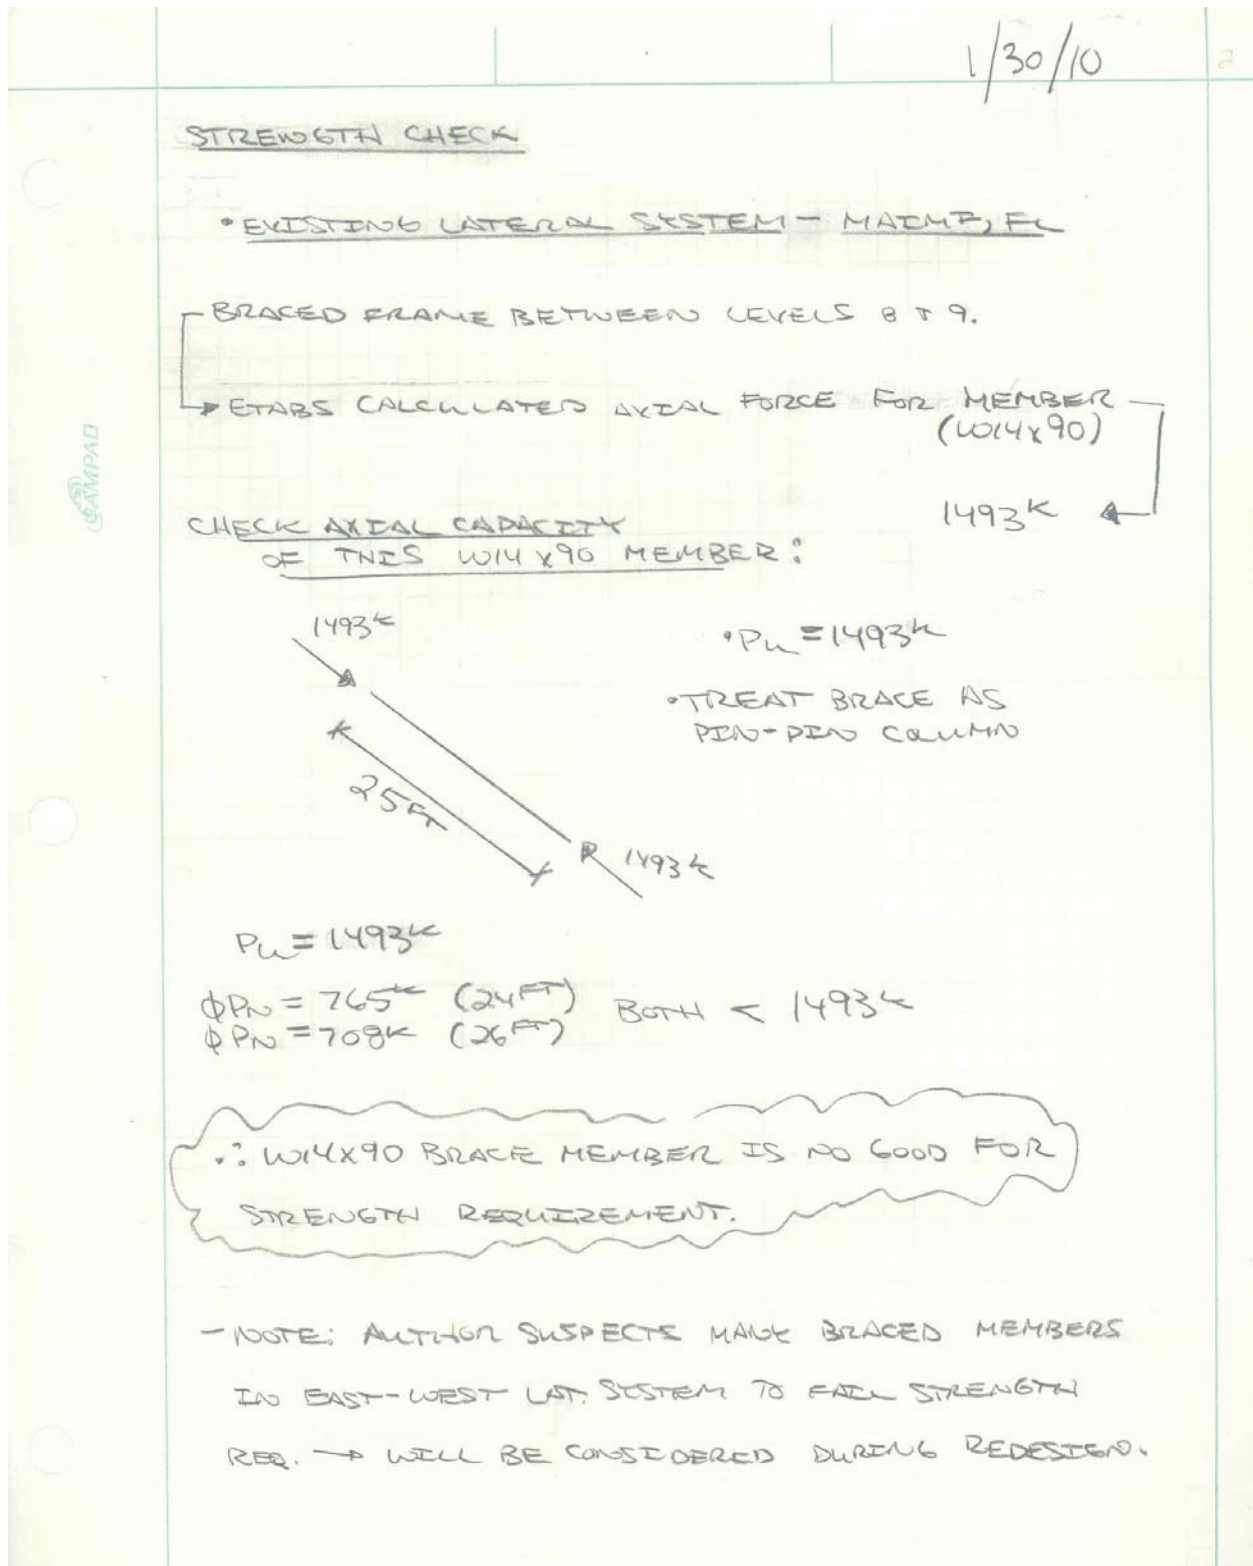 1/30/10
2
STRENGTH CHECK
• EXISTING LATERAL SYSTEM - MAIMI, FL
BRACED FRAME BETWEEN LEVELS 8 & 9.
ETABS CALCULATED AXIAL FORCE FOR MEMBER
(W14x90)
1493K
CAMPAD
CHECK AXIAL CAPACITY
OF THIS W14x90 MEMBER:
1493K
• Pu = 1493K
• TREAT BRACE AS
PIN-PIN COLUMN
25FT
1493K
Pu = 1493K
ΦPN = 765K (24FT) BOTH < 1493K
ΦPN = 708K (26FT)
∴ W14X90 BRACE MEMBER IS NO GOOD FOR
STRENGTH REQUIREMENT.
- NOTE: AUTHOR SUSPECTS MANY BRACED MEMBERS
IN EAST-WEST LAT. SYSTEM TO FAIL STRENGTH
REQ. → WILL BE CONSIDERED DURING REDESIGN.